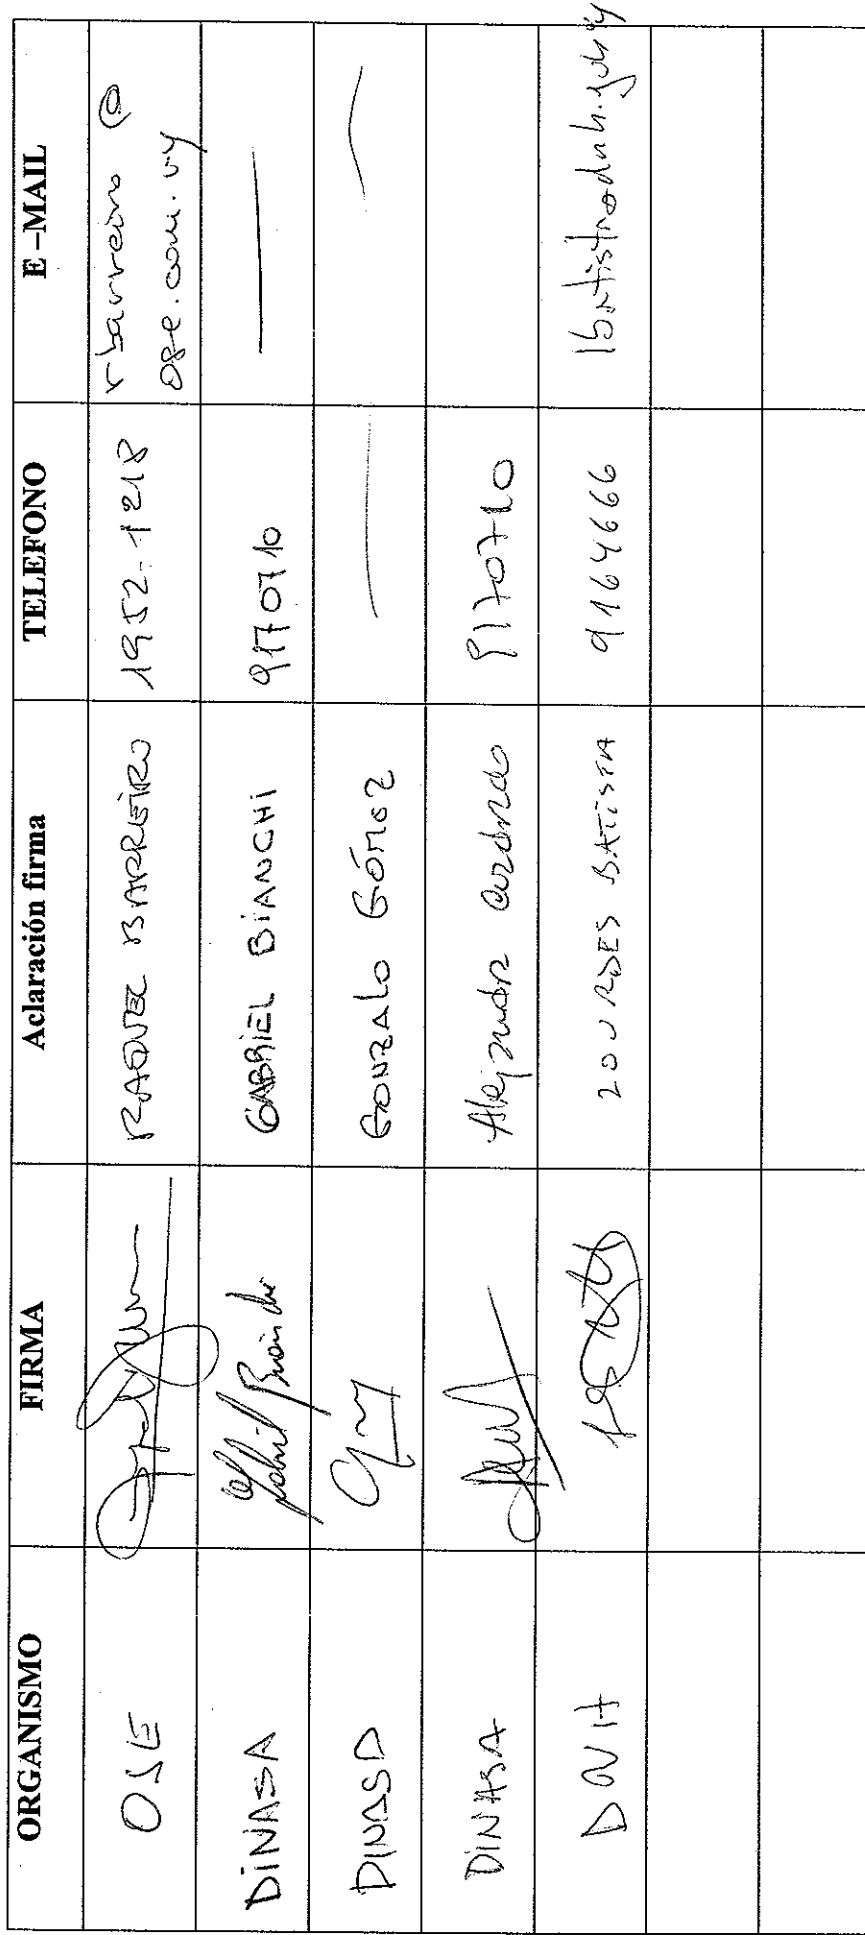 ORGANISMO FIRMA Aclaración firma TELEFONO E –MAIL
OSE RAQUEL BARREIRO 1952-1218 rbarreiro @
ose.com.uy
DINASA Gabriel Bianchi GABRIEL BIANCHI 9170710 —
DINASA GONZALO GÓMEZ — —
DINASA Alejandra 9170710
DNH LOURDES BATISTA 9164666